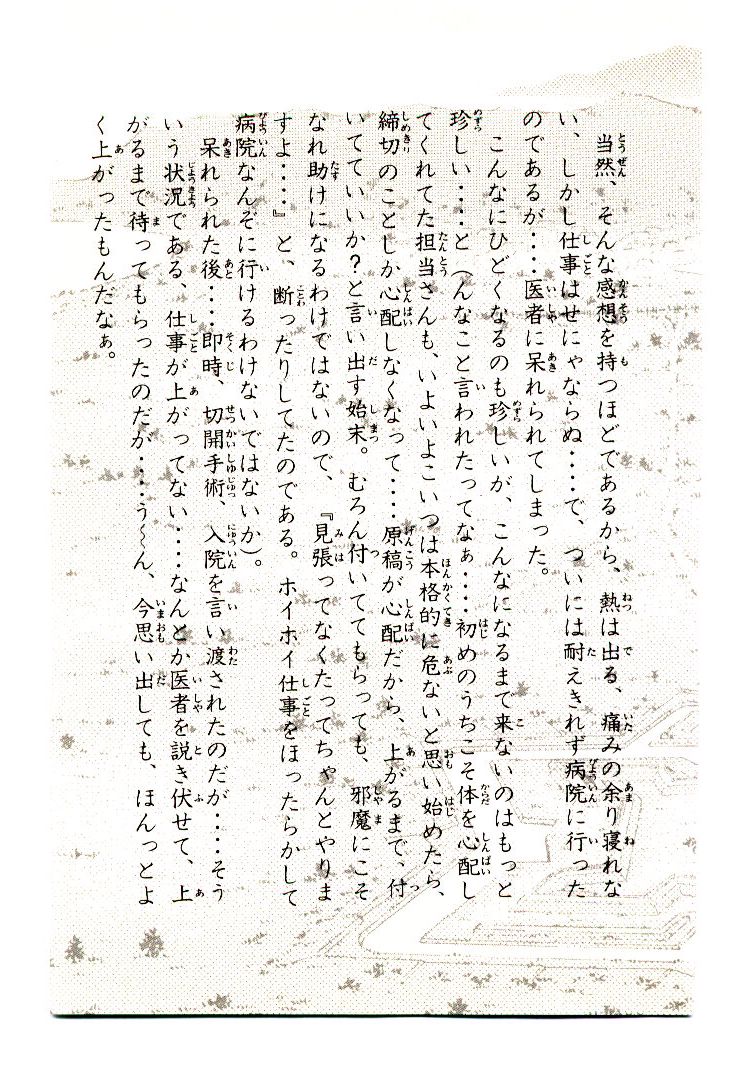 当然、そんな感想を持つほどであるから、熱は出る、痛みの余り寝れな
い、しかし仕事はせにゃならぬ‥‥で、ついには耐えきれず病院に行った
のであるが‥‥医者に呆れられてしまった。
こんなにひどくなるのも珍しいが、こんなになるまで来ないのはもっと
珍しい‥‥と（んなこと言われたってなぁ‥‥初めのうちこそ体を心配し
てくれてた担当さんも、いよいよこいつは本格的に危ないと思い始めたら、
締切のことしか心配しなくなって‥‥原稿が心配だから、上がるまで、付
いてていいか？と言い出す始末。むろん付いててもらっても、邪魔にこそ
なれ助けになるわけではないので、『見張ってなくたってちゃんとやりま
すよ‥‥』と、断ったりしてたのである。ホイホイ仕事をほったらかして
病院なんぞに行けるわけないではないか）。
呆れられた後‥‥即時、切開手術、入院を言い渡されたのだが‥‥そう
いう状況である、仕事が上がってない‥‥なんとか医者を説き伏せて、上
がるまで待ってもらったのだが‥‥う～ん、今思い出しても、ほんっとよ
く上がったもんだなぁ。